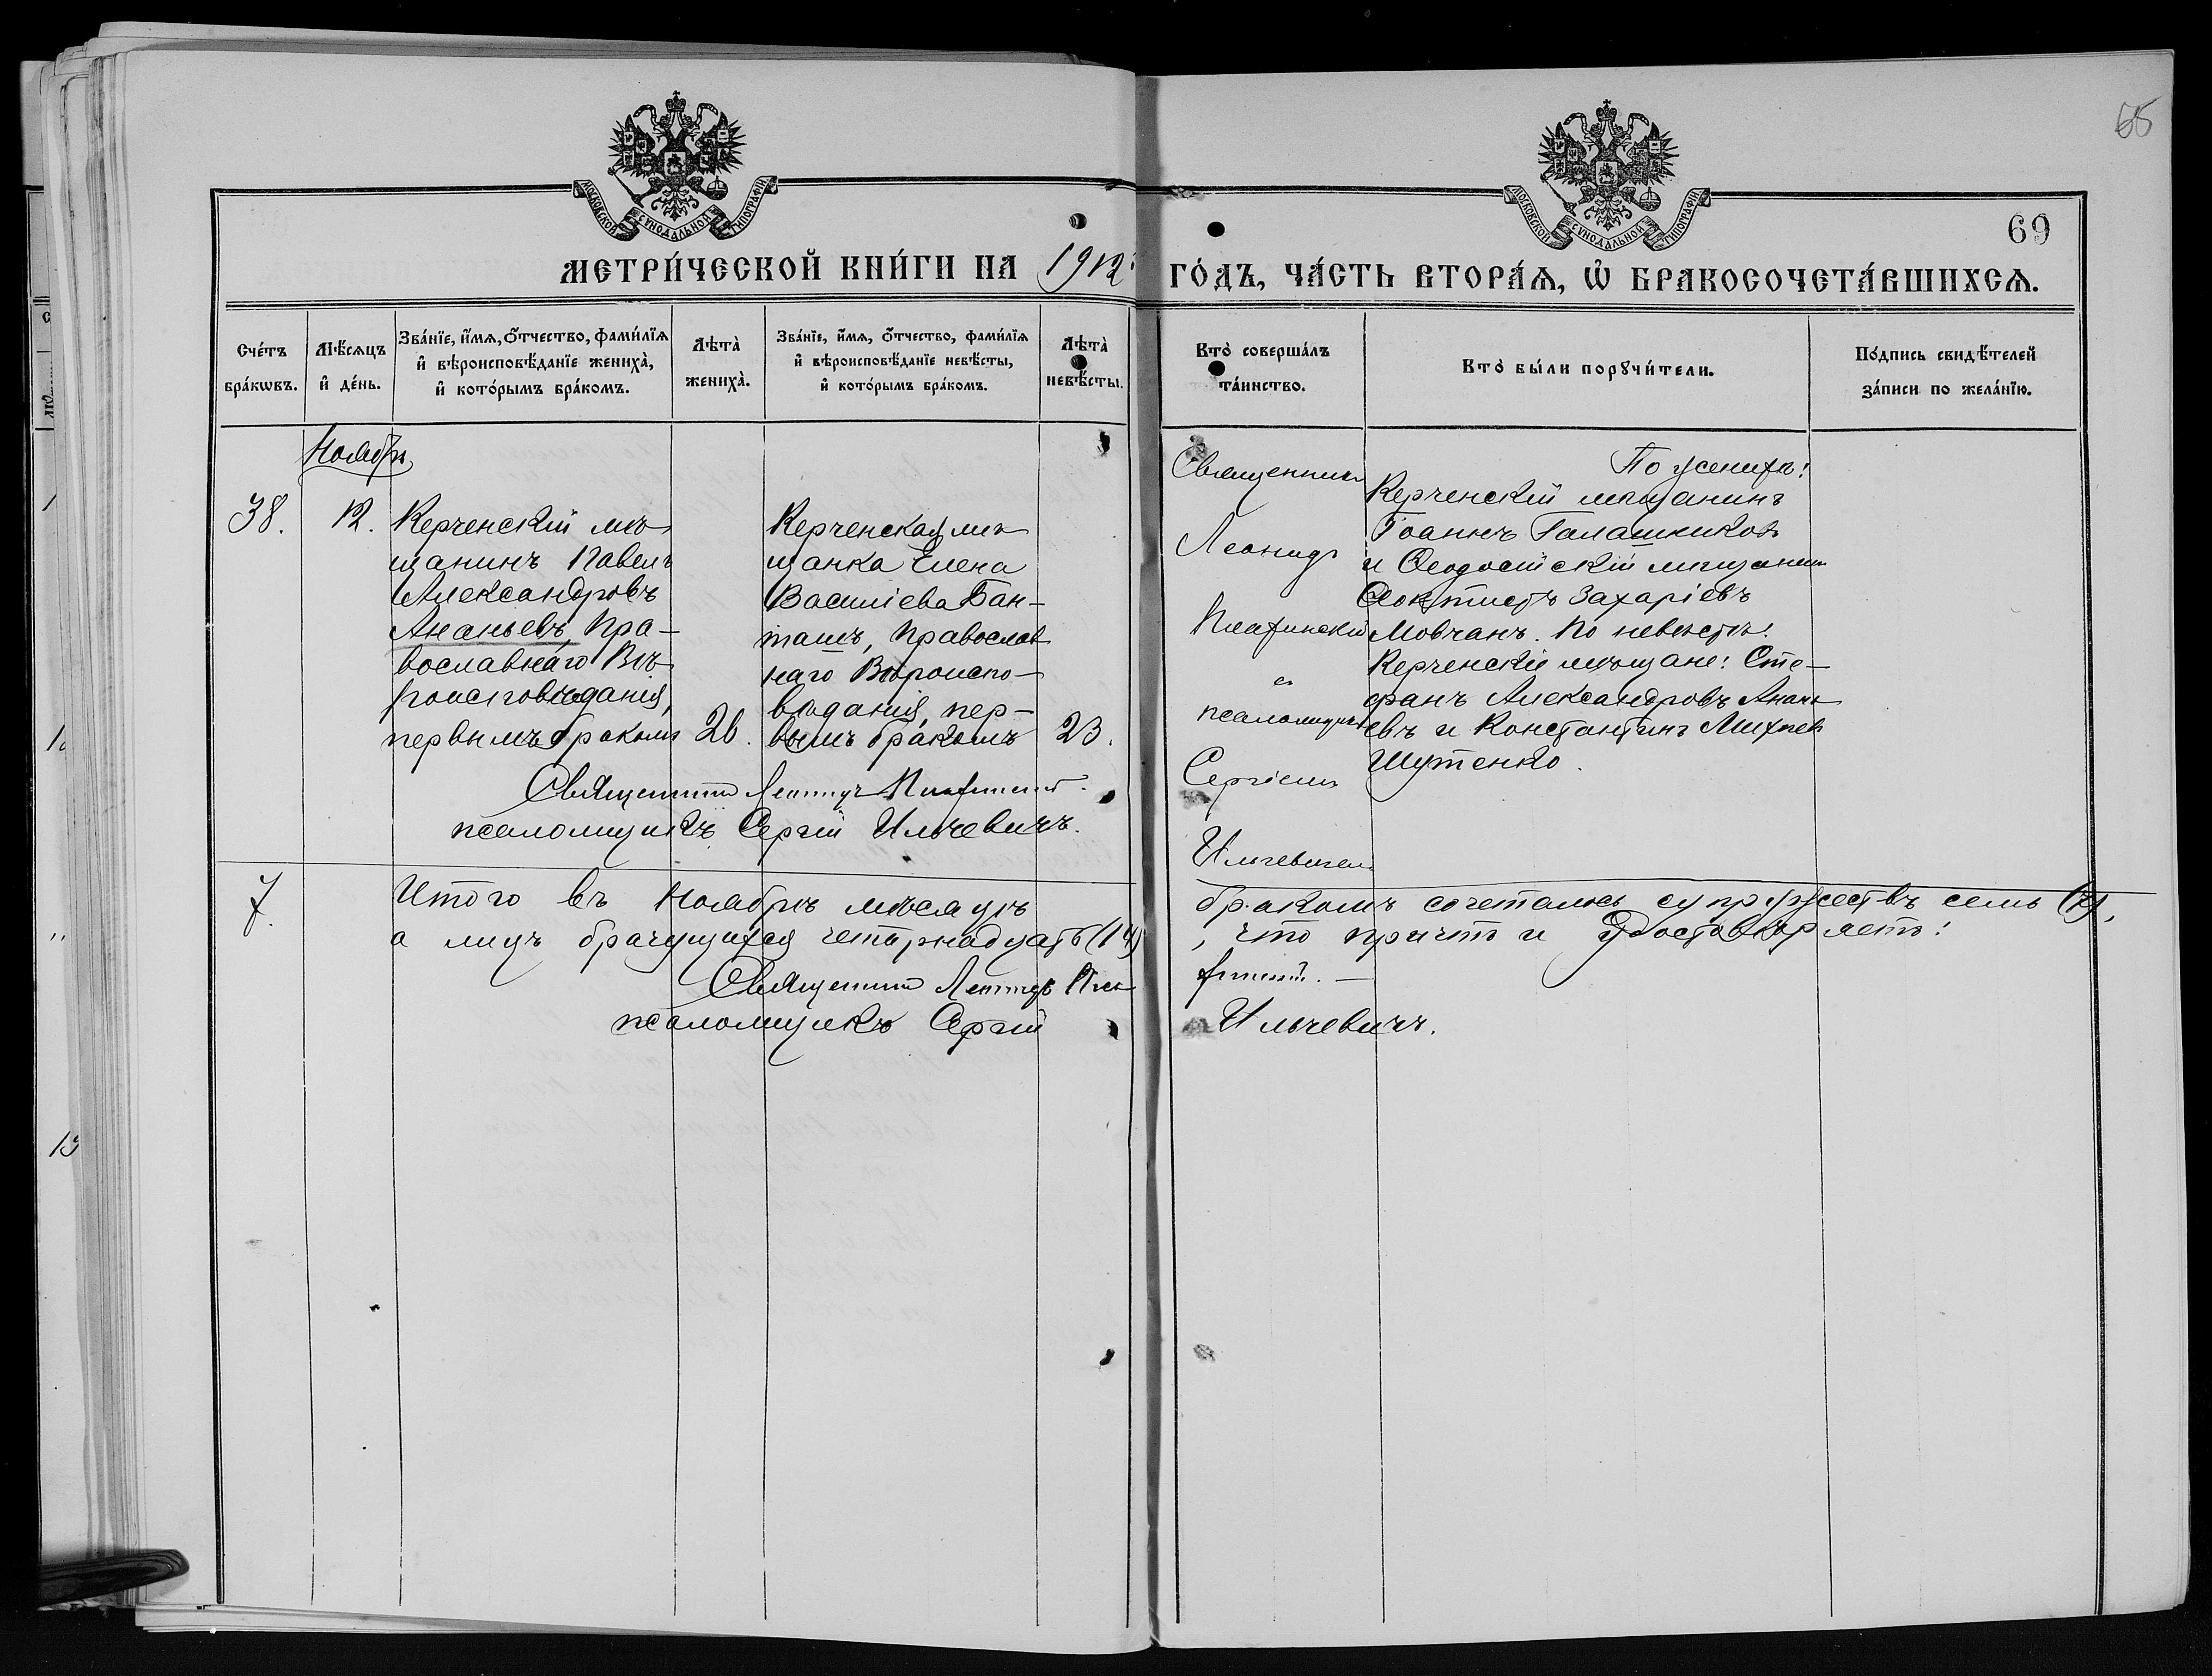 65
69
МОСКОВСКОЙ СѴНОДАЛЬНОЙ ТИПОГРАФІИ
МОСКОВСКОЙ СѴНОДАЛЬНОЙ ТИПОГРАФІИ
МЕТРИ́ЧЕСКОЙ КНИ́ГИ НА 1912 ГО́ДЪ, ЧА́СТЬ ВТОРА́Ѧ, Ѡ҆ БРАКОСОЧЕТА́ВШИХСѦ.
Сче́тъ бра́кѡвъ.
Мѣ́сѧцъ и҆ де́нь.
Зва́нїе, и҆́мѧ, ѻ҆́тчество, фами́лїѧ и҆ вѣроисповѣ́данїе жениха̀, и҆ кото́рымъ бра́комъ.
Лѣта̀ жениха̀.
Зва́нїе, и҆́мѧ, ѻ҆́тчество, фами́лїѧ и҆ вѣроисповѣ́данїе невѣ́сты, и҆ кото́рымъ бра́комъ.
Лѣта̀ невѣ́сты.
Кто̀ соверша́лъ та́инство.
Кто̀ бы́ли порꙋчи́тели.
По́дпись свидѣ́телей за́писи по жела́нїю.
Ноябрь
38.
12.
Керченскій мѣ-
щанинъ Павелъ
Александровъ
Ананьевъ, Пра-
вославнаго Вѣ-
роисповѣданія,
первымъ бракомъ
26.
Керченская мѣ-
щанка Елена
Василіева Бан-
ташъ, Православ
наго Вѣроиспо-
вѣданія, пер-
вымъ бракомъ
23.
Священникъ Леонидъ Планинскій.
псаломщикъ Сергій Ильчевичъ.
Священникъ
Леонидъ
и
псаломщикъ
Сергіемъ
Ильчевичемъ
По женихѣ:
Керченскій мѣщанинъ
Іоаннъ Галашниковъ
и Ѳеодосійскій мѣщанинъ
Ѳеоктистъ Захаріевъ
Мовчанъ. По невѣстѣ:
Керченскіе мѣщане: Сте-
фанъ Александровъ Анань
евъ и Константинъ Михаил
Шутенко.
7.
Итого въ Ноябрѣ мѣсяцѣ бракомъ сочеталось супружествъ семь (7),
а лицъ брачущихся четырнадцать (14), что причтъ и удостовѣряетъ:
Священникъ Леонидъ
псаломщикъ Сергій Ильчевичъ.